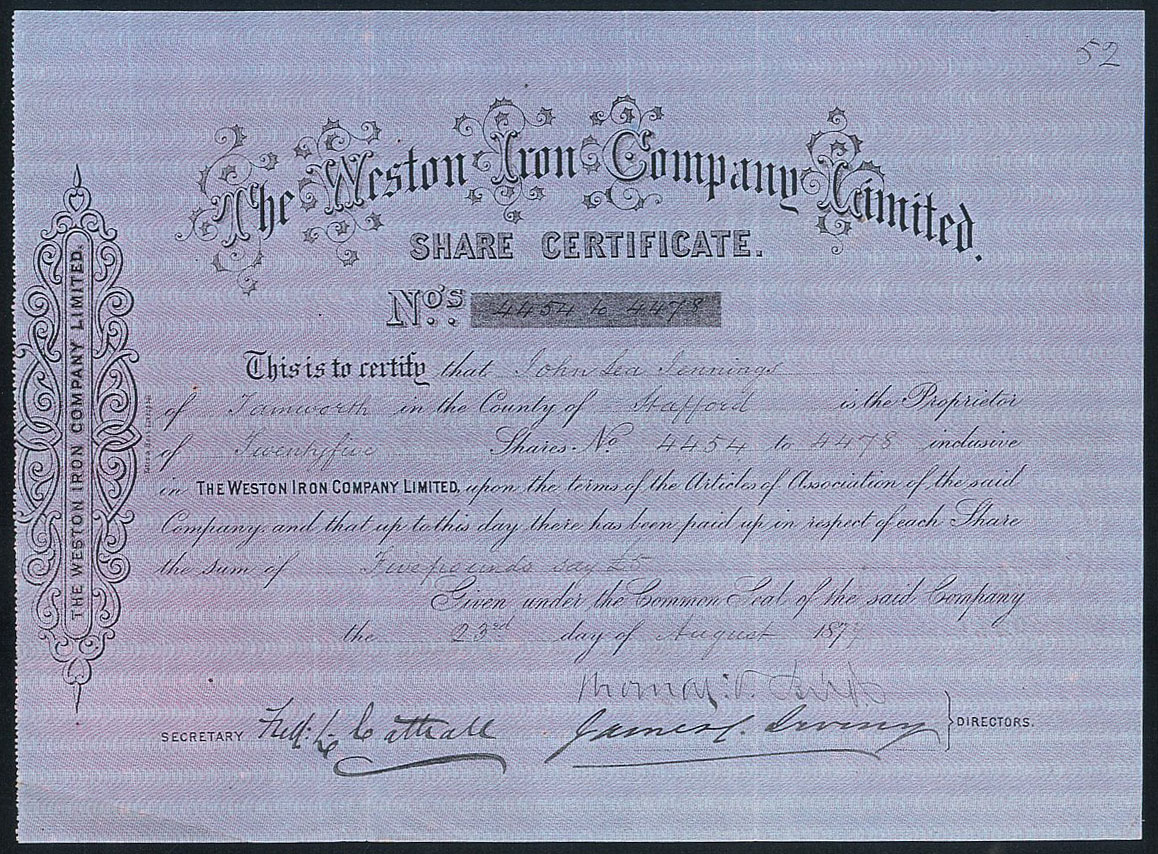 52
The Weston Iron Company Limited.
SHARE CERTIFICATE.
Nos. 4454 to 4478
THE WESTON IRON COMPANY LIMITED.
This is to certify that John Lea Jennings
of Tamworth in the County of Stafford is the Proprietor
of Twentyfive Shares. No. 4454 to 4478 inclusive
in THE WESTON IRON COMPANY LIMITED, upon the terms of the Articles of Association of the said
Company, and that up to this day there has been paid up in respect of each Share
the sum of Five pounds say £5
Given under the Common Seal of the said Company
the 23rd day of August 1877
Thomas
SECRETARY Fredk. L. Cattrall James C. Irving DIRECTORS.